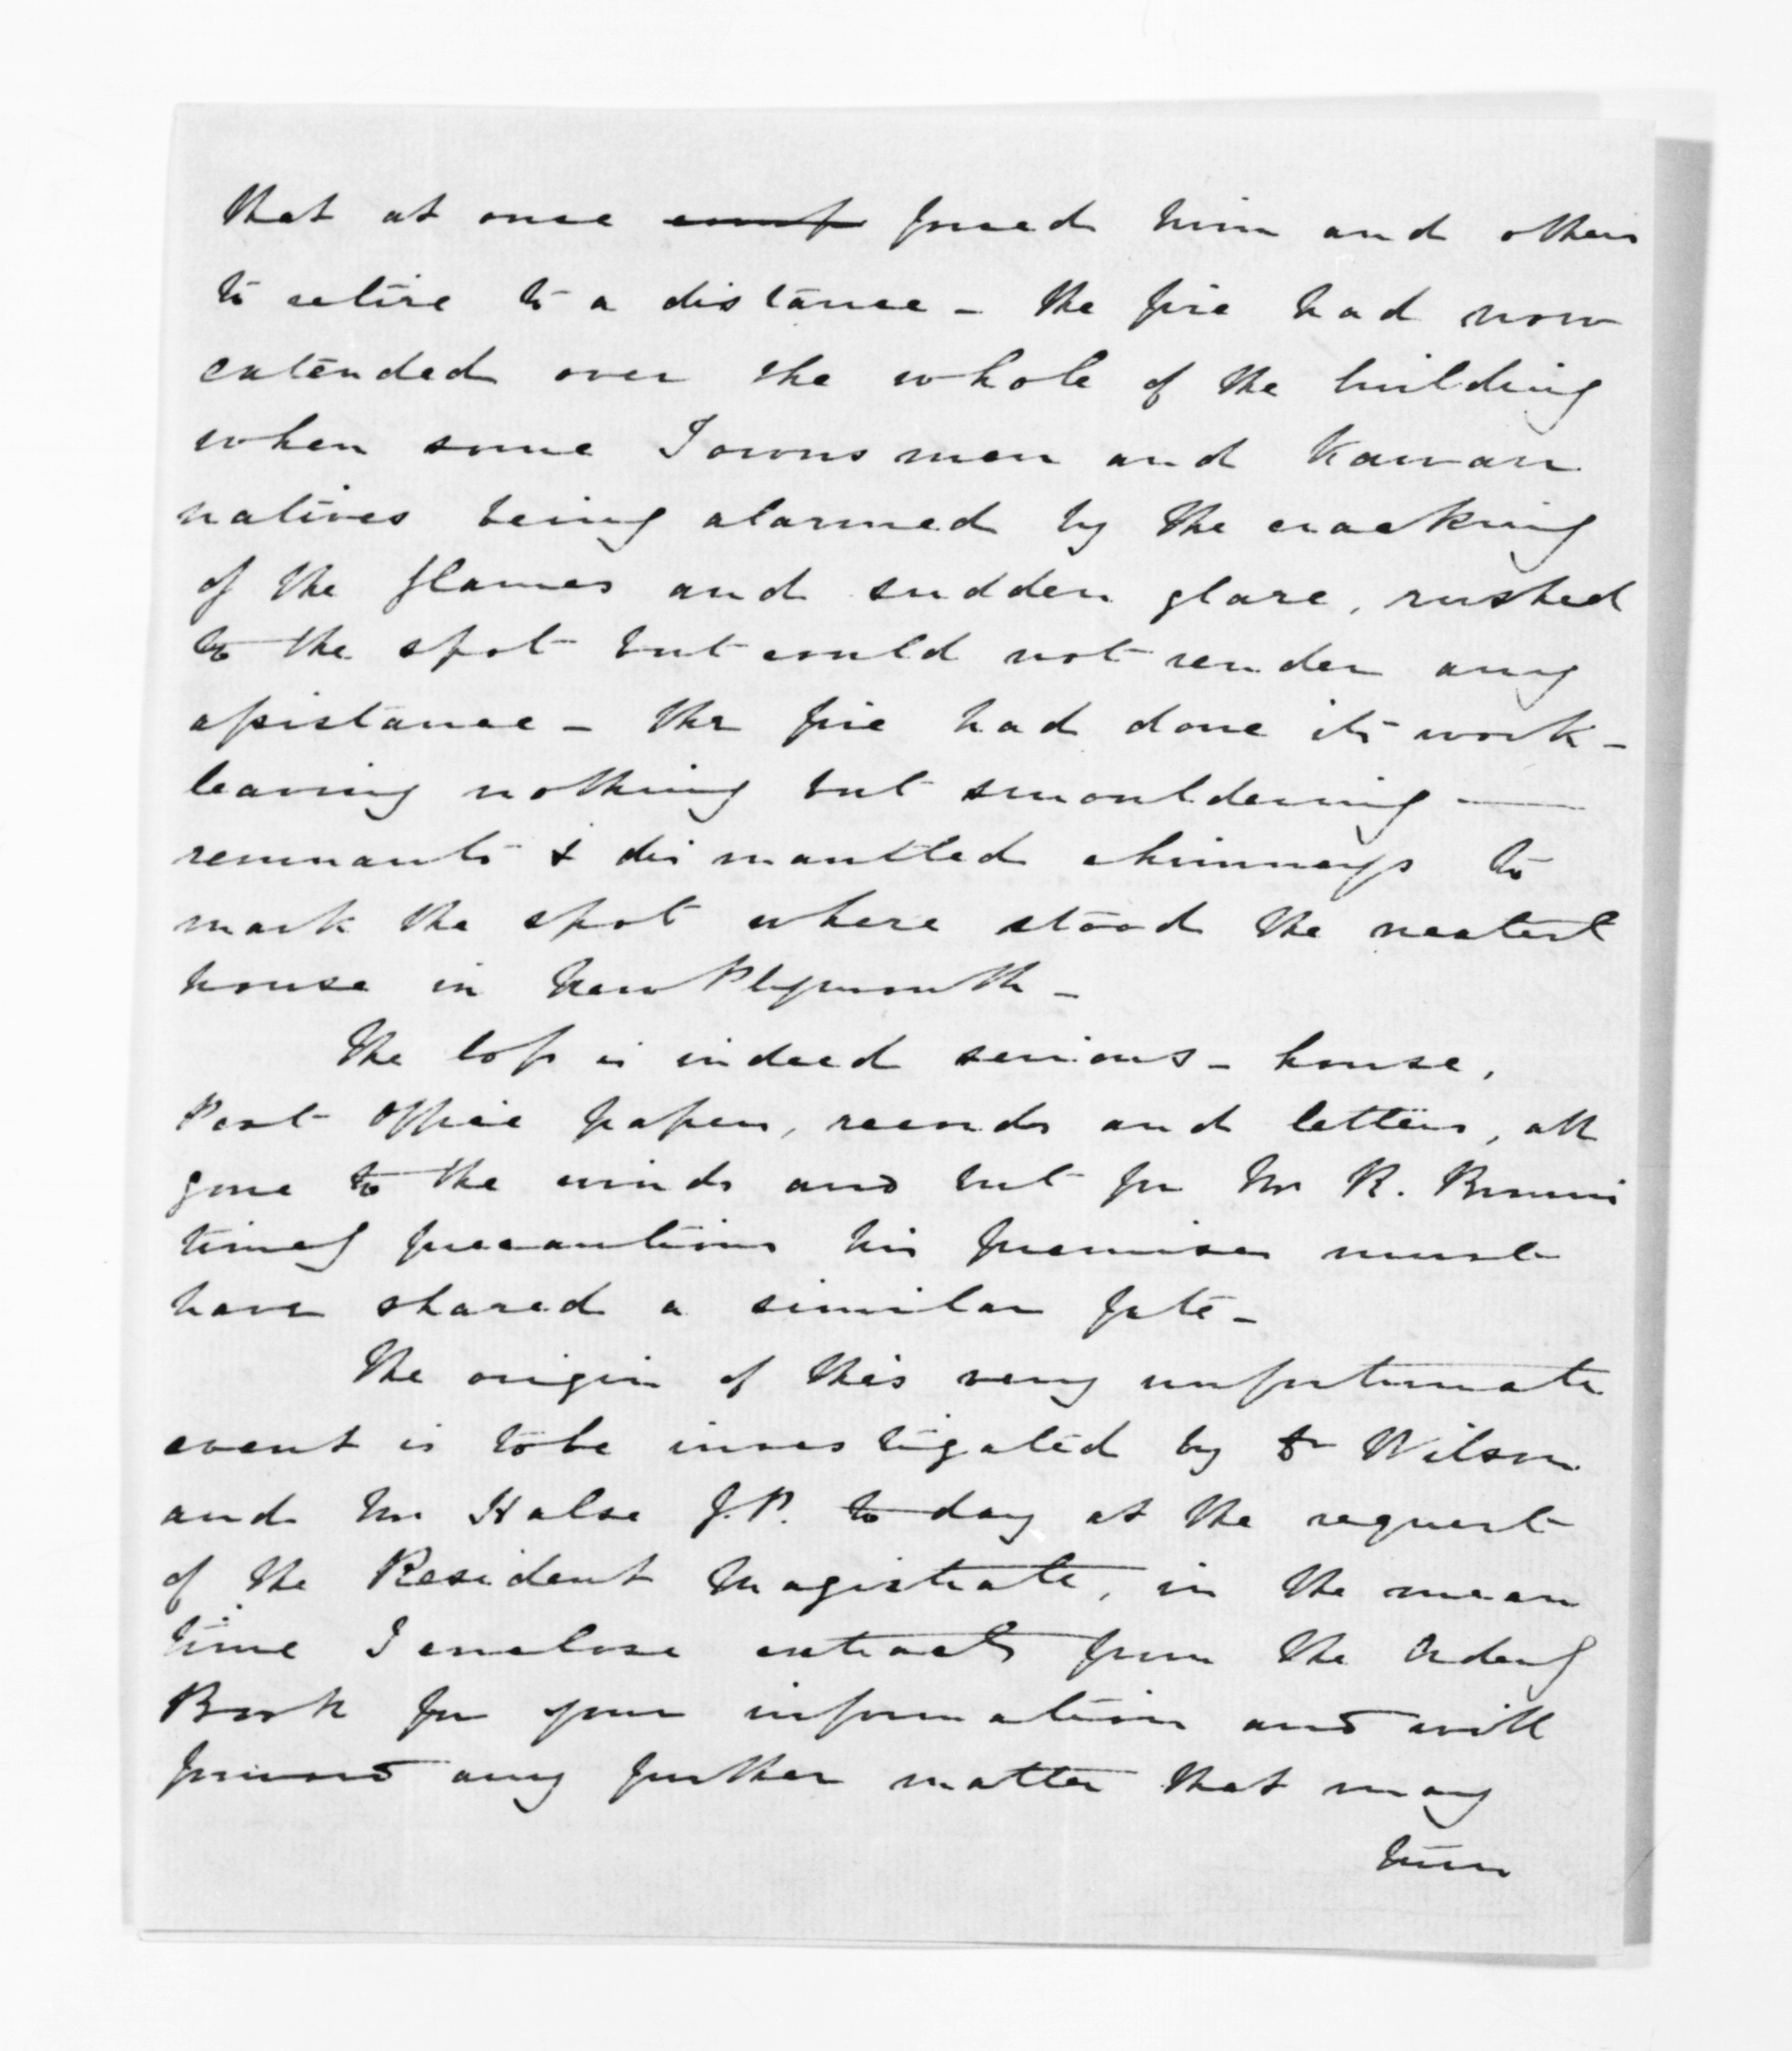 that at once forced him and others
to retire to a distance - the fire had now
extended over the whole of the building
when some Townsmen and Kawau
natives being alarmed by the cracking
of the flames and sudden glare, rushed
to the spot but could not render any
assistance - the fire had done its work -
leaving nothing but smouldering —
remnants & dismantled chimneys to
mark the spot where stood the neatest
house in New Plymouth -
The loss is indeed serious - house,
Post Office papers, records and letters, all
gone to the winds and but for Mr R. Browns
timely precautions his premises must
have shared a similar fate -
The origin of this very unfortunate
event is to be investigated by Dr Wilson
and Mr Halse J.P. to day at the request
of the Resident Magistrate, in the mean
time I enclose extracts from the Orderly
Book for your information and will
forward any further matter that may
turn